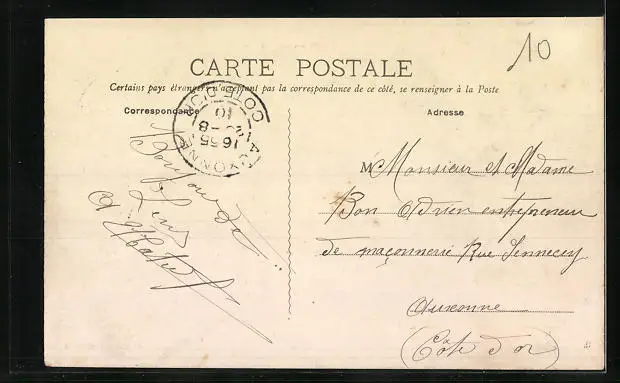 10
CARTE POSTALE
Certains pays étrangers n'acceptant pas la correspondance de ce côté, se renseigner à la Poste
Correspondance
Adresse
AUXONNE
16 55
-8
10
COTE D'OR
Bonjour de
M Monsieur et Madame
Bon Adrien entrepreneur
de maçonnerie Rue Jennecey
Auxonne
(Côte d'or)